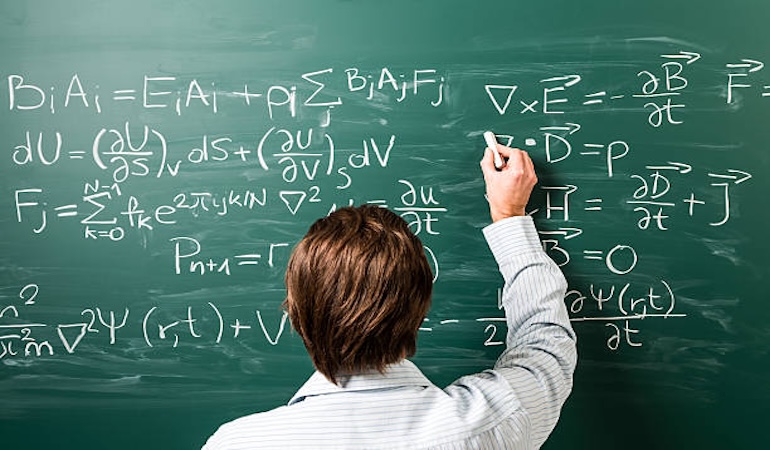 BᵢAᵢ = EᵢAᵢ + ρᵢ ∑ⱼ BⱼAⱼFⱼ
dU = (∂U/∂S)ᵥ dS + (∂U/∂V)ₛ dV
Fⱼ = ∑ₖ₌₀ᴺ⁻¹ fₖe^(2πijk/N)
∇² u = ∂u/∂t
Pₙ₊₁ = r
∇²Ψ(r,t) + V
∂Ψ(r,t)/∂t
∇ × E⃗ = - ∂B⃗/∂t
· D⃗ = ρ
H⃗ = ∂D⃗/∂t + J⃗
B⃗ = 0
F⃗ =